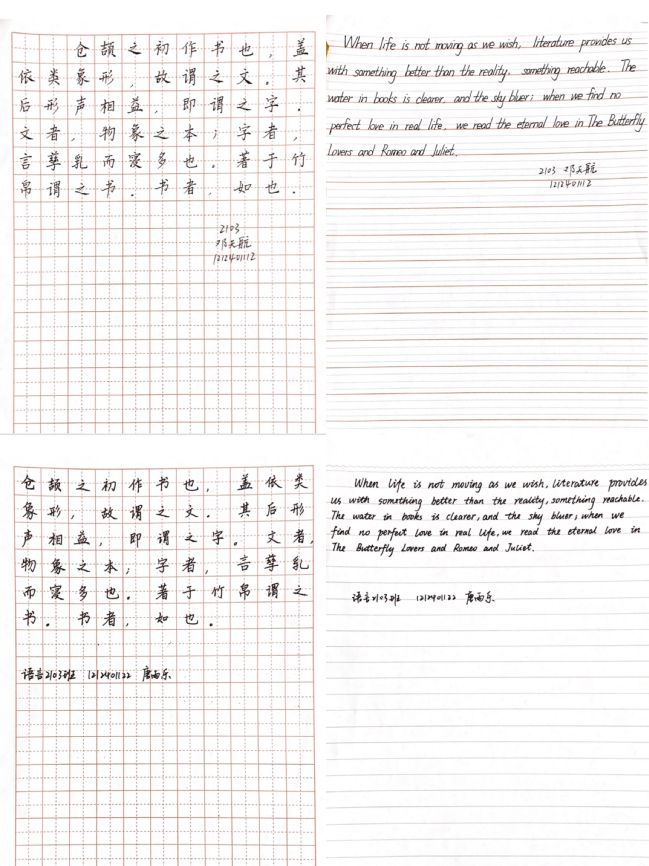 仓颉之初作书也，盖
依类象形，故谓之文。其
后形声相益，即谓之字。
文者，物象之本；字者，
言孳乳而寖多也。著于竹
帛谓之书。书者，如也。
2103
邓天航
1212401112
When life is not moving as we wish, literature provides us
with something better than the reality, something reachable. The
water in books is clearer, and the sky bluer; when we find no
perfect love in real life, we read the eternal love in The Butterfly
Lovers and Romeo and Juliet.
2103 邓天航
1212401112
仓颉之初作书也，盖依类
象形，故谓之文。其后形
声相益，即谓之字。文者，
物象之本；字者，言孳乳
而寖多也。著于竹帛谓之
书。书者，如也。
语言2103班 1212401122 唐雨乐
When life is not moving as we wish, literature provides
us with something better than the reality, something reachable.
The water in books is clearer, and the sky bluer; when we
find no perfect love in real life, we read the eternal love in
The Butterfly Lovers and Romeo and Juliet.
语言2103班 1212401122 唐雨乐